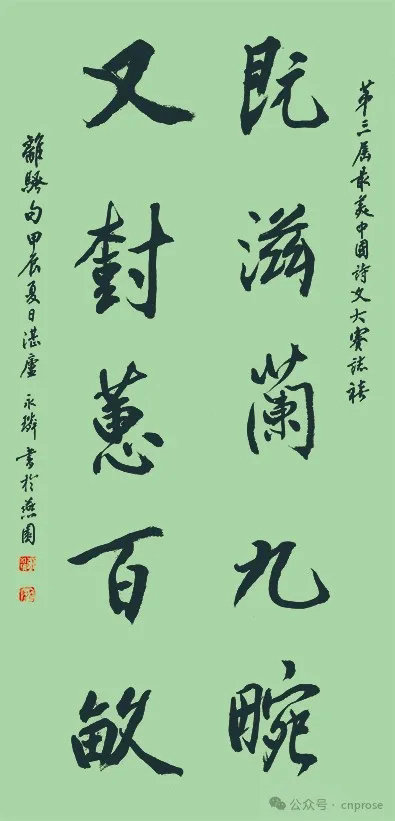 第三届最美中国詩文大賽誌禧
既滋蘭九畹
又樹蕙百畝
離騷句甲辰夏日湛廬 永璘書於燕園
公众号 · cnprose